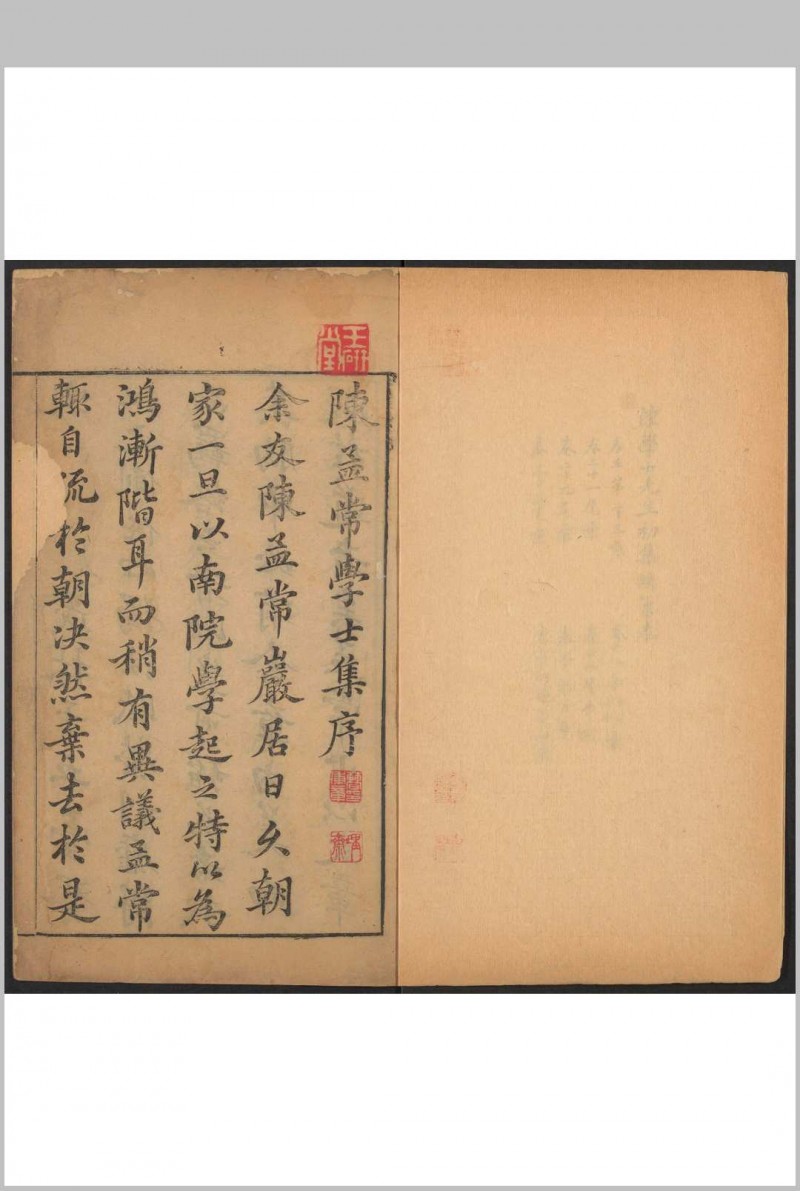 陳孟常學士集序
余友陳孟常巖居日久朝
家一旦以南院學起之特以為
鴻漸階耳而稍有異議孟常
輒自流於朝决然棄去於是